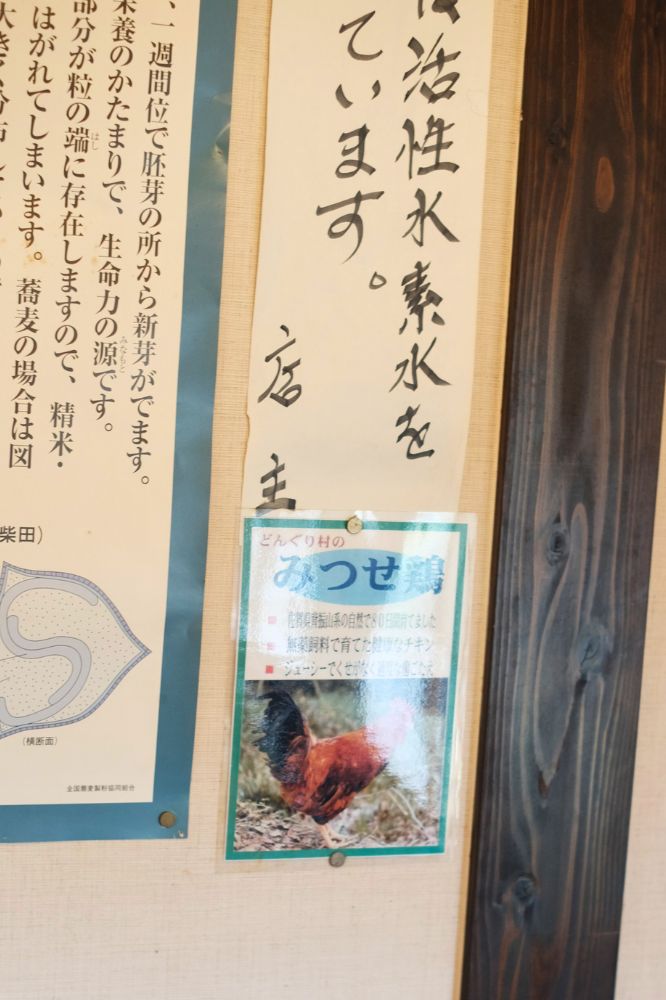 活性水素水を
ています。
店主
、一週間位で胚芽の所から新芽がでます。
栄養のかたまりで、生命力の源です。
みなもと
部分が粒の端に存在しますので、精米・
はし
はがれてしまいます。蕎麦の場合は図
柴田）
（横断面）
全国蕎麦製粉協同組合
どんぐり村の
みつせ鶏
佐賀県脊振山系の自然で80日間育てました
無薬飼料で育てた健康なチキン
ジューシーでくせがなく適度な歯ごたえ